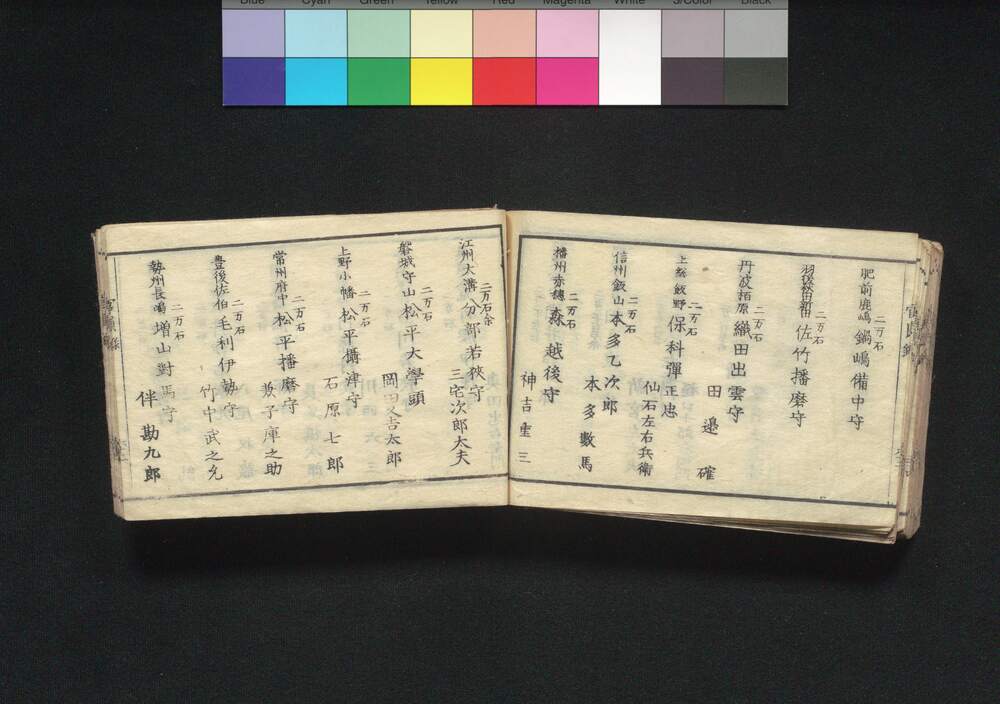 Blue Cyan Green Yellow Red Magenta White 3/Color Black
肥前鹿嶋 二万石 鍋嶋備中守
二万石 佐竹播磨守
丹波栢原 二万石 織田出雲守
田邉 確
上総飯野 二万石 保科彈正忠
仙石左右兵衛
信州飯山 二万石 本多乙次郎
本多數馬
播州赤穗 二万石 森越後守
神吉重三
江州大溝 二万石余 分部若狹守
三宅次郎太夫
磐城守山 二万石 松平大學頭
岡田吉太郎
上野小幡 二万石 松平攝津守
石原七郎
常州府中 二万石 松平播磨守
子庫之助
豊後佐伯 二万石 毛利伊勢守
竹中武之允
勢州長嶋 二万石 増山對馬守
伴勘九郎